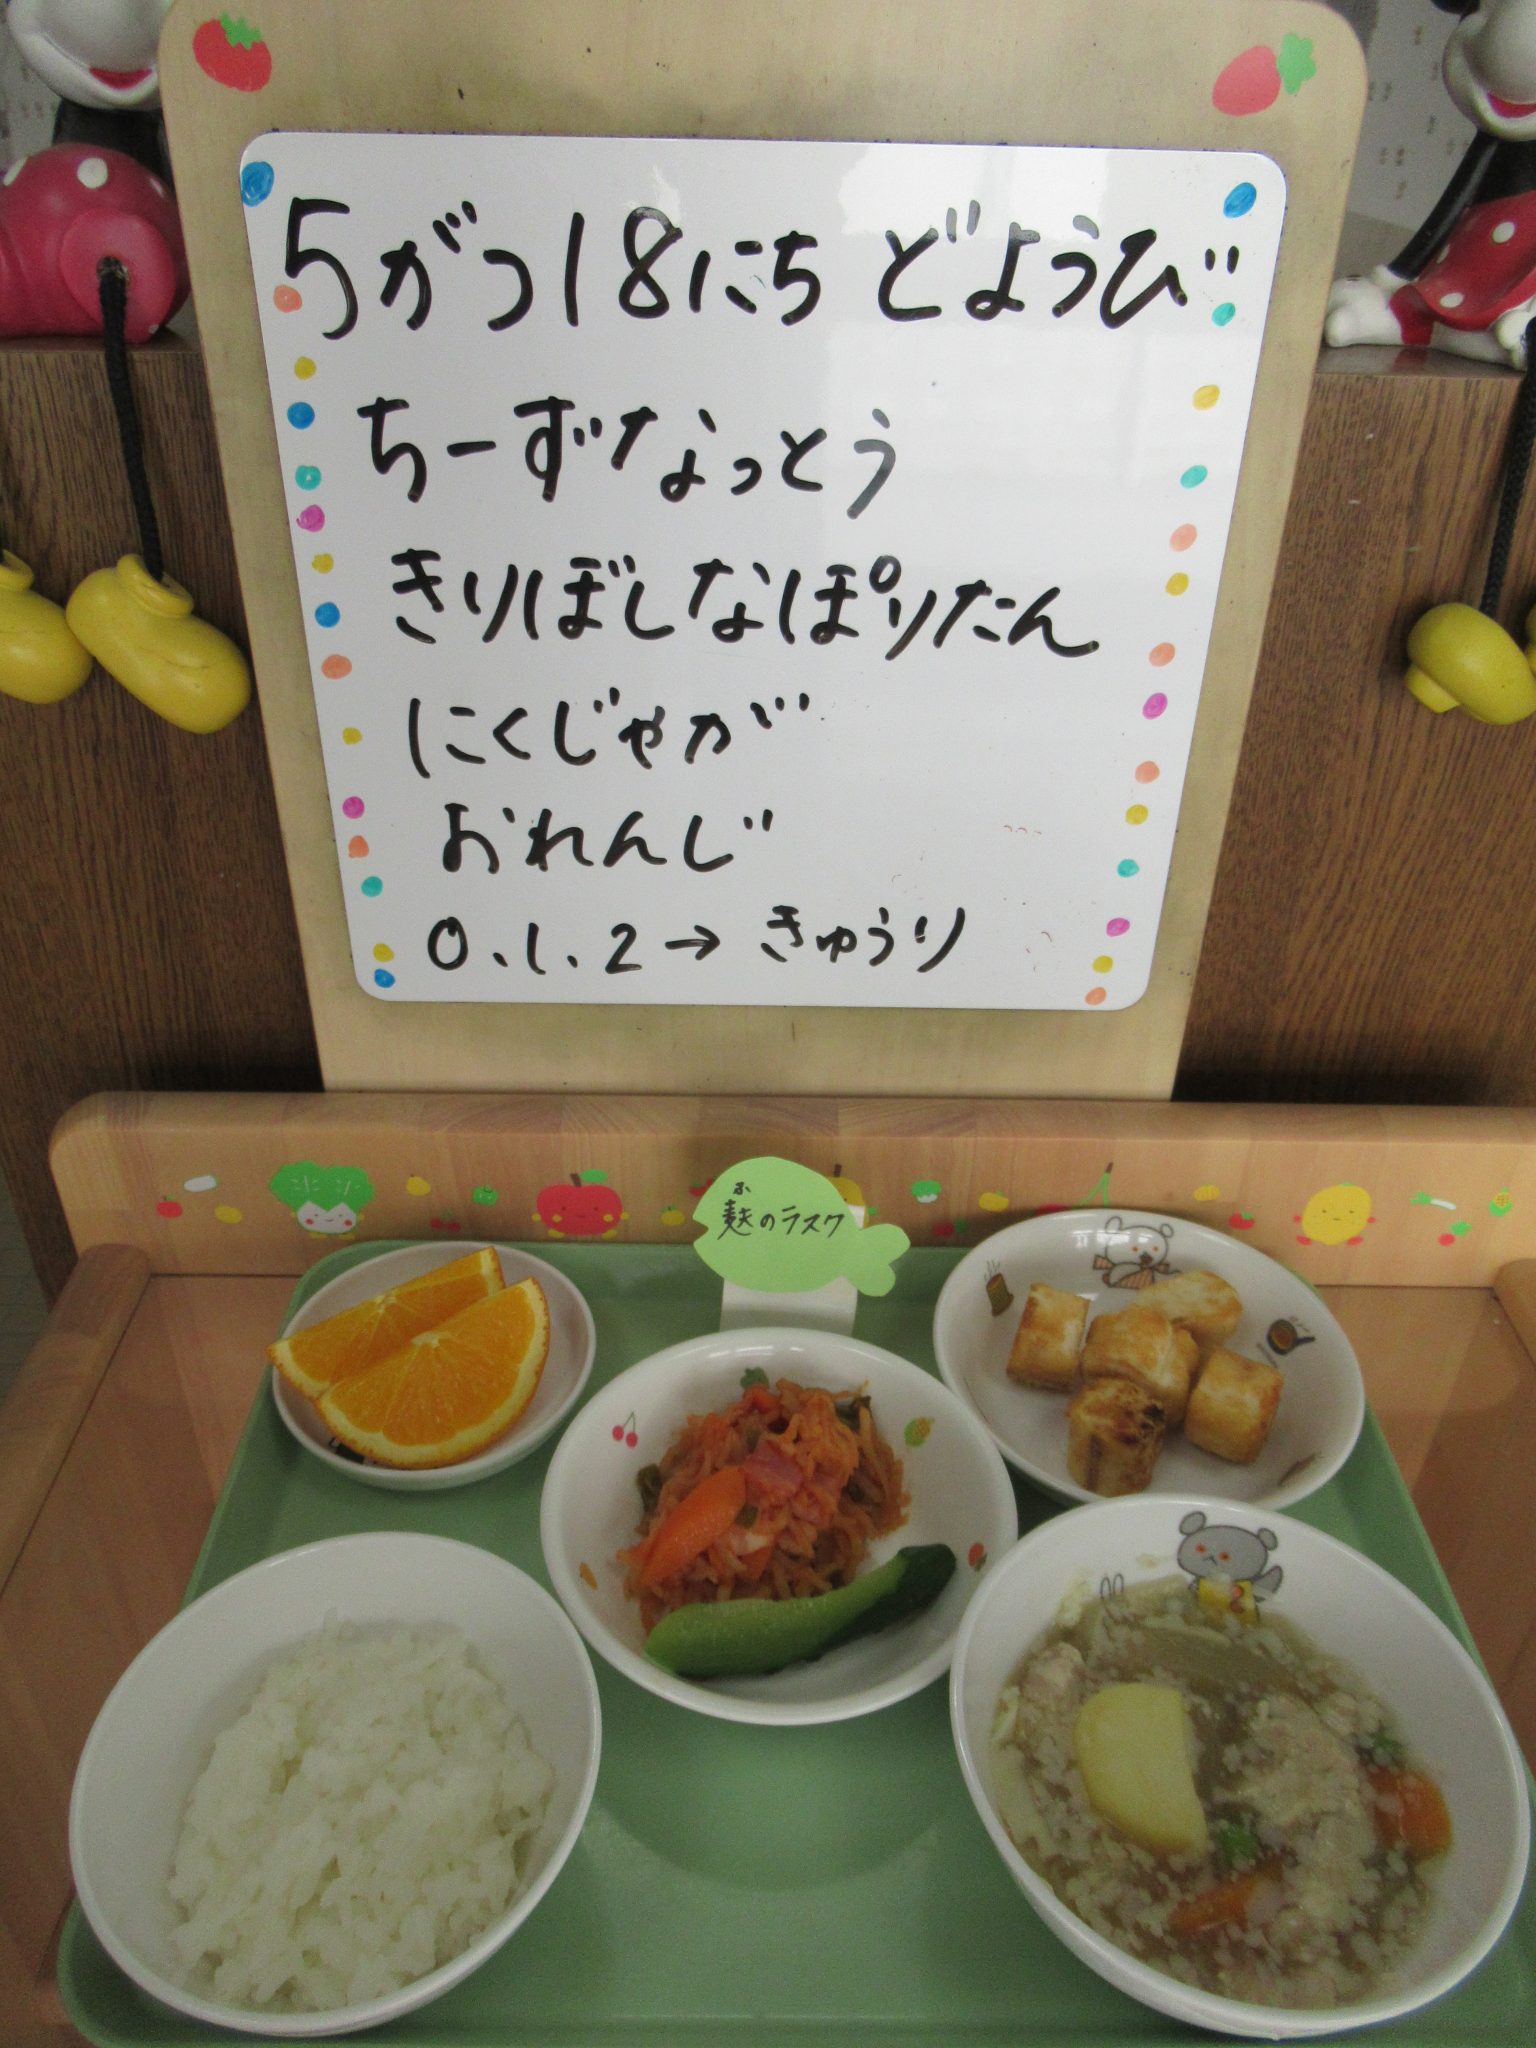 5がつ18にち どようび
ちーずなっとう
きりぼしなぽりたん
にくじゃが
おれんじ
0.1.2→きゅうり
お麩のラスク